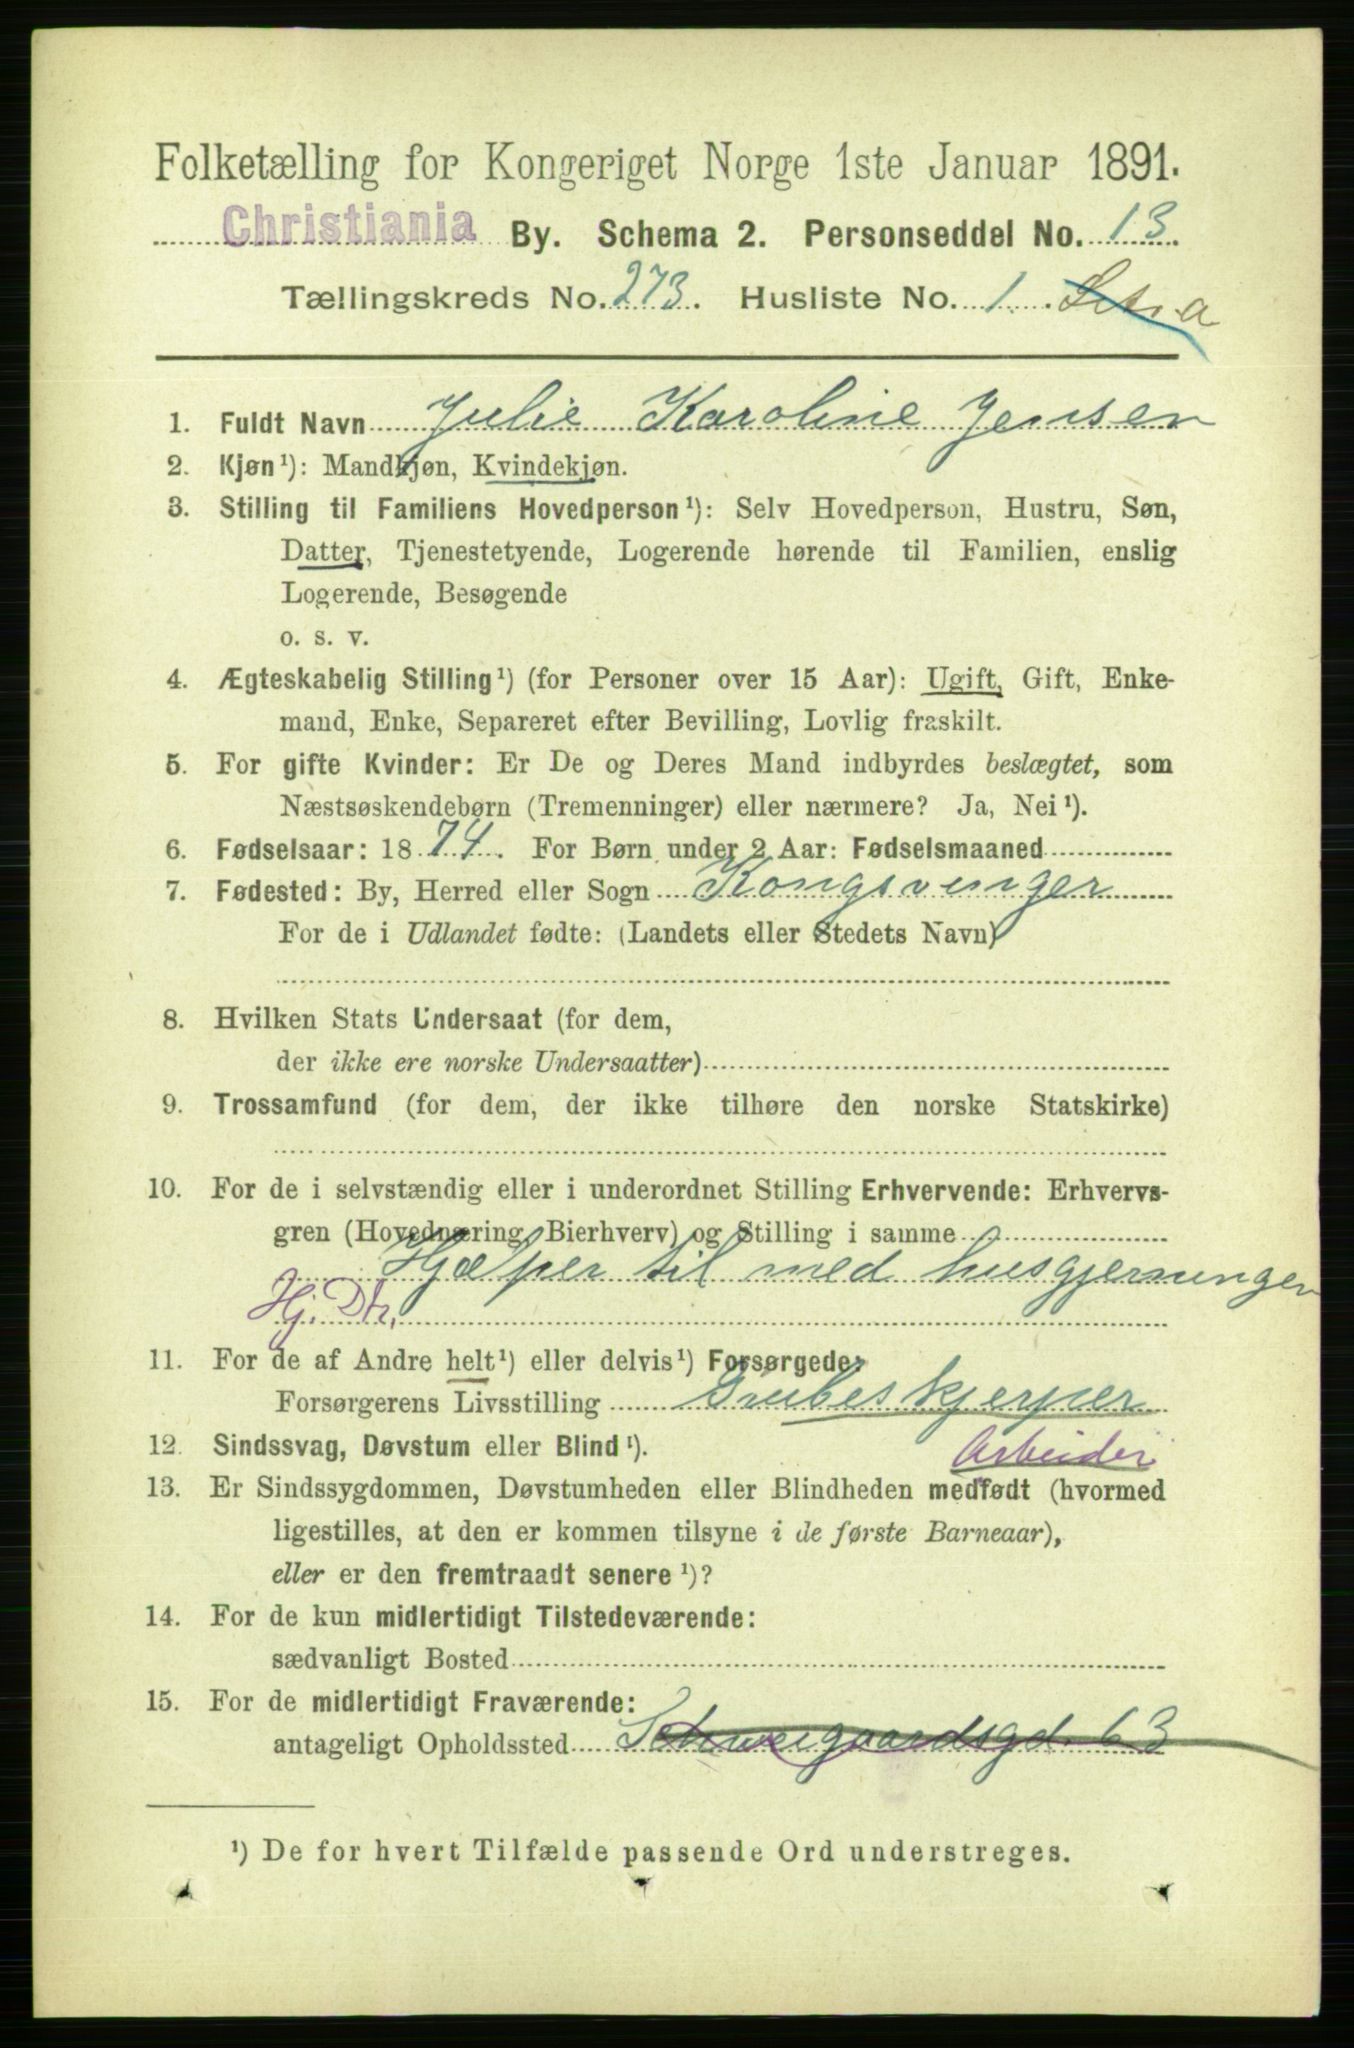 Folketælling for Kongeriget Norge 1ste Januar 1891.
Christiania By. Schema 2. Personseddel No. 13.
Tællingskreds No. 273. Husliste No. 1.
1. Fuldt Navn Julie Karoline Jensen
2. Kjøn¹): Mandkjøn, Kvindekjøn.
3. Stilling til Familiens Hovedperson¹): Selv Hovedperson, Hustru, Søn,
Datter, Tjenestetyende, Logerende hørende til Familien, enslig
Logerende, Besøgende
o. s. v.
4. Ægteskabelig Stilling¹) (for Personer over 15 Aar): Ugift, Gift, Enke-
mand, Enke, Separeret efter Bevilling, Lovlig fraskilt.
5. For gifte Kvinder: Er De og Deres Mand indbyrdes beslægtet, som
Næstsøskendebørn (Tremenninger) eller nærmere? Ja, Nei¹).
6. Fødselsaar: 1874. For Børn under 2 Aar: Fødselsmaaned
7. Fødested: By, Herred eller Sogn Kongsvinger
For de i Udlandet fødte: (Landets eller Stedets Navn)
8. Hvilken Stats Undersaat (for dem,
der ikke ere norske Undersaatter)
9. Trossamfund (for dem, der ikke tilhøre den norske Statskirke)
10. For de i selvstændig eller i underordnet Stilling Erhvervende: Erhvervs-
gren (Hovednæring, Bierhverv) og Stilling i samme
Hjælper til med husgjerningen
Hj. Dtr.
11. For de af Andre helt¹) eller delvis¹) Forsørgede:
Forsørgerens Livsstilling Grubeskjerper
12. Sindssvag, Døvstum eller Blind¹). Arbeider
13. Er Sindssygdommen, Døvstumheden eller Blindheden medfødt (hvormed
ligestilles, at den er kommen tilsyne i de første Barneaar),
eller er den fremtraadt senere¹)?
14. For de kun midlertidigt Tilstedeværende:
sædvanligt Bosted
15. For de midlertidigt Fraværende:
antageligt Opholdssted Schweigaardsgd. 63
¹) De for hvert Tilfælde passende Ord understreges.